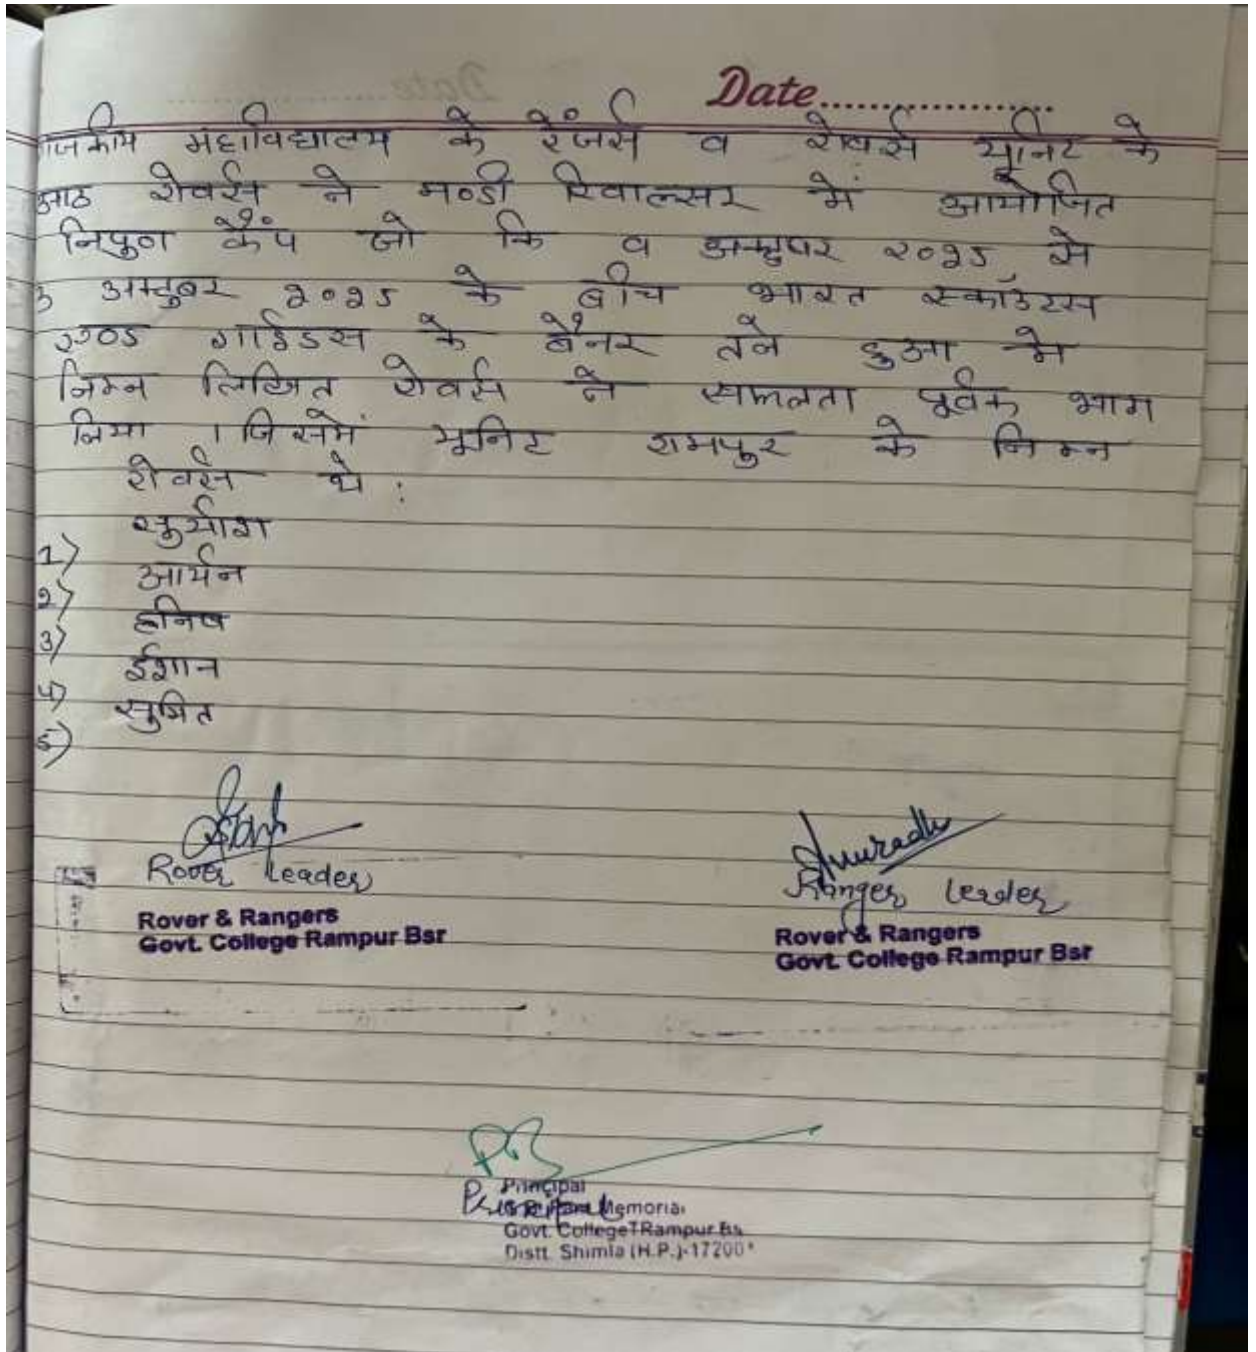 Date....................
राजकीय महाविद्यालय के रेंजर्स व रोवर्स यूनिट के
आठ रोवर्स ने मण्डी रिवाल्सर में आयोजित
निपुण कैंप जो कि व अक्टूबर २०२५ से
3 अक्टूबर २०२५ के बीच भारत स्काउटस
एण्ड गाईडस के बैनर तले हुआ मे
निम्न लिखित रोवर्स ने सफलता पूर्वक भाग
लिया । जिसमें यूनिट रामपुर के निम्न
रोवर्स थे :
1) सुयांश
2) आर्यन
3)
4) ईशान
5) सुमित
Rover Leader
Rover & Rangers
Govt. College Rampur Bsr
Anuradha
Ranger Leader
Rover & Rangers
Govt. College Rampur Bsr
Principal
Principal
Memorial
Govt. College Rampur Bs
Distt. Shimla (H.P.)-17200